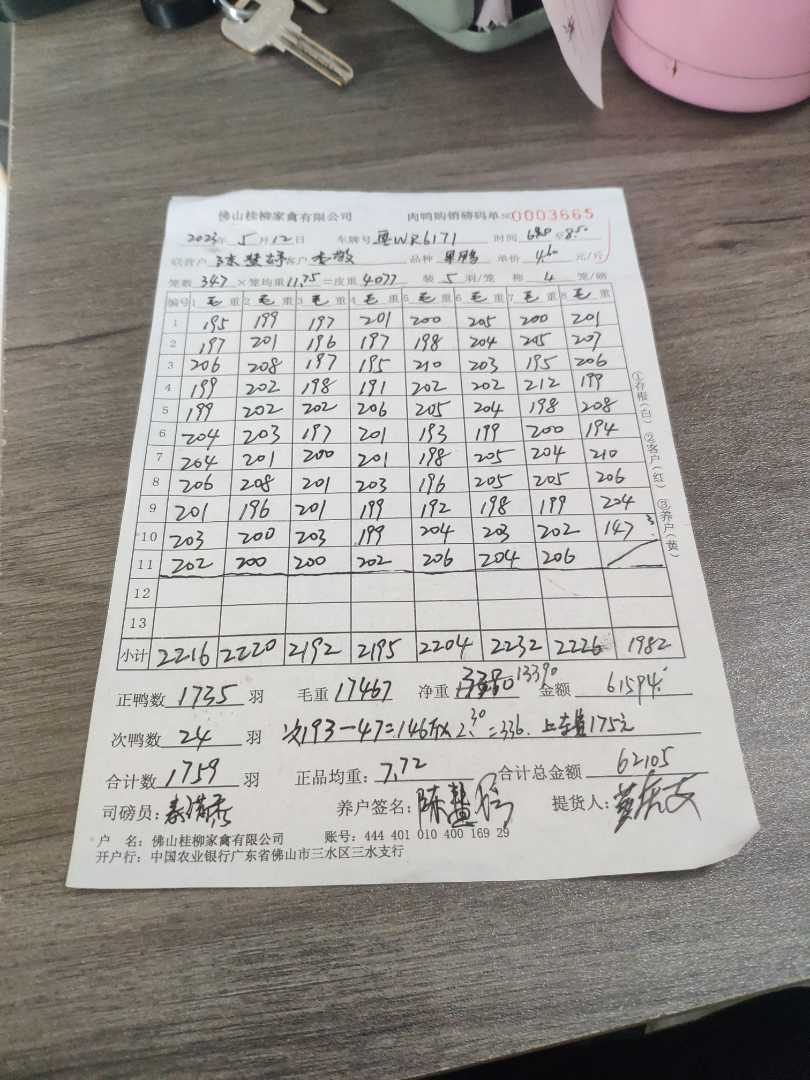 佛山桂柳家禽有限公司 肉鸭购销磅码单 № 0003665
2023年 5月12日 车牌号 粤WR6171 时间 至8.50
联营户 客户 品种 单价 4.60 元/斤
笼数 347 ×笼均重 11.75 =皮重 4077 装 5 羽/笼 称 4 笼/磅
编号 1 毛 重 2 毛 重 3 毛 重 4 毛 重 5 毛 重 6 毛 重 7 毛 重 8 毛 重
1 195 199 197 201 200 205 200 201
2 197 201 196 197 198 204 205 207
3 206 208 197 195 210 203 195 206
4 199 202 198 191 202 202 212 199
5 199 202 202 206 205 204 198 208
6 204 203 197 201 193 199 200 194
7 204 201 200 201 198 205 204 210
8 206 208 201 203 196 205 205 206
9 201 196 201 199 192 198 199 204
10 203 200 203 199 204 203 202 147 3
11 202 200 200 202 206 204 206
12
13
小计 2216 2220 2192 2195 2204 2232 2226 1982
正鸭数 1735 羽 毛重 17467 净重 13390 金额 61594
次鸭数 24 羽 次193-47=146斤× 2.30 =336. 上车费175元
合计数 1759 羽 正品均重: 7.72 合计总金额 62105
司磅员: 养户签名: 提货人:
户 名: 佛山桂柳家禽有限公司 账号: 444 401 010 400 169 29
开户行: 中国农业银行广东省佛山市三水区三水支行
①存根(白) ②客户(红) ③养户(黄)